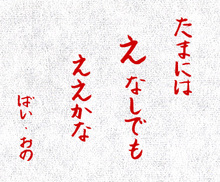 たまには
え なしでも
ええかな
ばい・おの